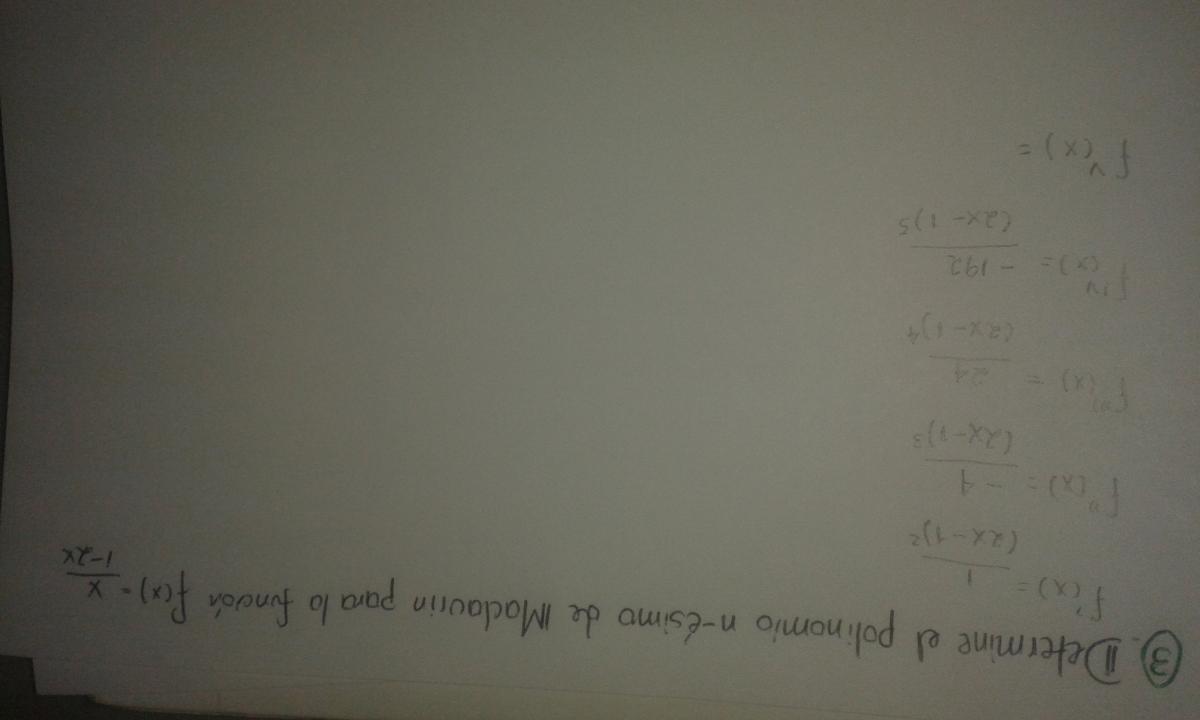 3. Determine el polinomio n-ésimo de Maclaurin para la función f(x) = x / 1-2x
f'(x) = 1 / (2x-1)²
f''(x) = -4 / (2x-1)³
f'''(x) = 24 / (2x-1)⁴
f^IV(x) = -192 / (2x-1)⁵
f^V(x) =